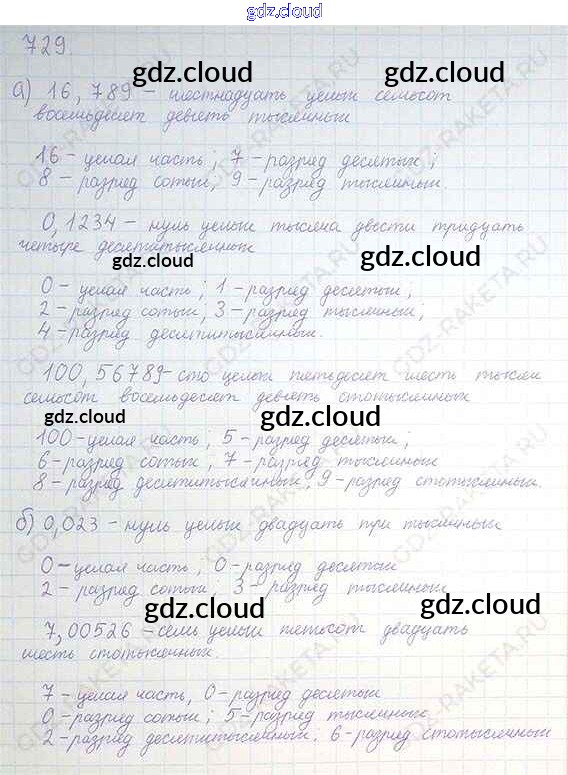 gdz.cloud
729.
gdz.cloud gdz.cloud
а) 16, 789 – шестнадцать целых семьсот
восемьдесят девять тысячных
16 – целая часть; 7 – разряд десятых;
8 – разряд сотых; 9 – разряд тысячных.
0, 1234 – нуль целых тысяча двести тридцать
четыре десятитысячных
gdz.cloud gdz.cloud
0 – целая часть; 1 – разряд десятых;
2 – разряд сотых; 3 – разряд тысячных;
4 – разряд десятитысячных.
100, 56789 – сто целых пятьдесят шесть тысяч
семьсот восемьдесят девять стотысячных
gdz.cloud gdz.cloud
100 – целая часть; 5 – разряд десятых;
6 – разряд сотых; 7 – разряд тысячных
8 – разряд десятитысячных, 9 – разряд стотысячных.
б) 0,023 – нуль целых двадцать три тысячных
0 – целая часть, 0 – разряд десятых
2 – разряд сотых; 3 – разряд тысячных
gdz.cloud gdz.cloud
7,00526 – семь целых пятьсот двадцать
шесть стотысячных.
7 – целая часть, 0 – разряд десятых
0 – разряд сотых; 5 – разряд тысячных
2 – разряд десятитысячных; 6 – разряд стотысячных
GDZ-RAKETA.RU